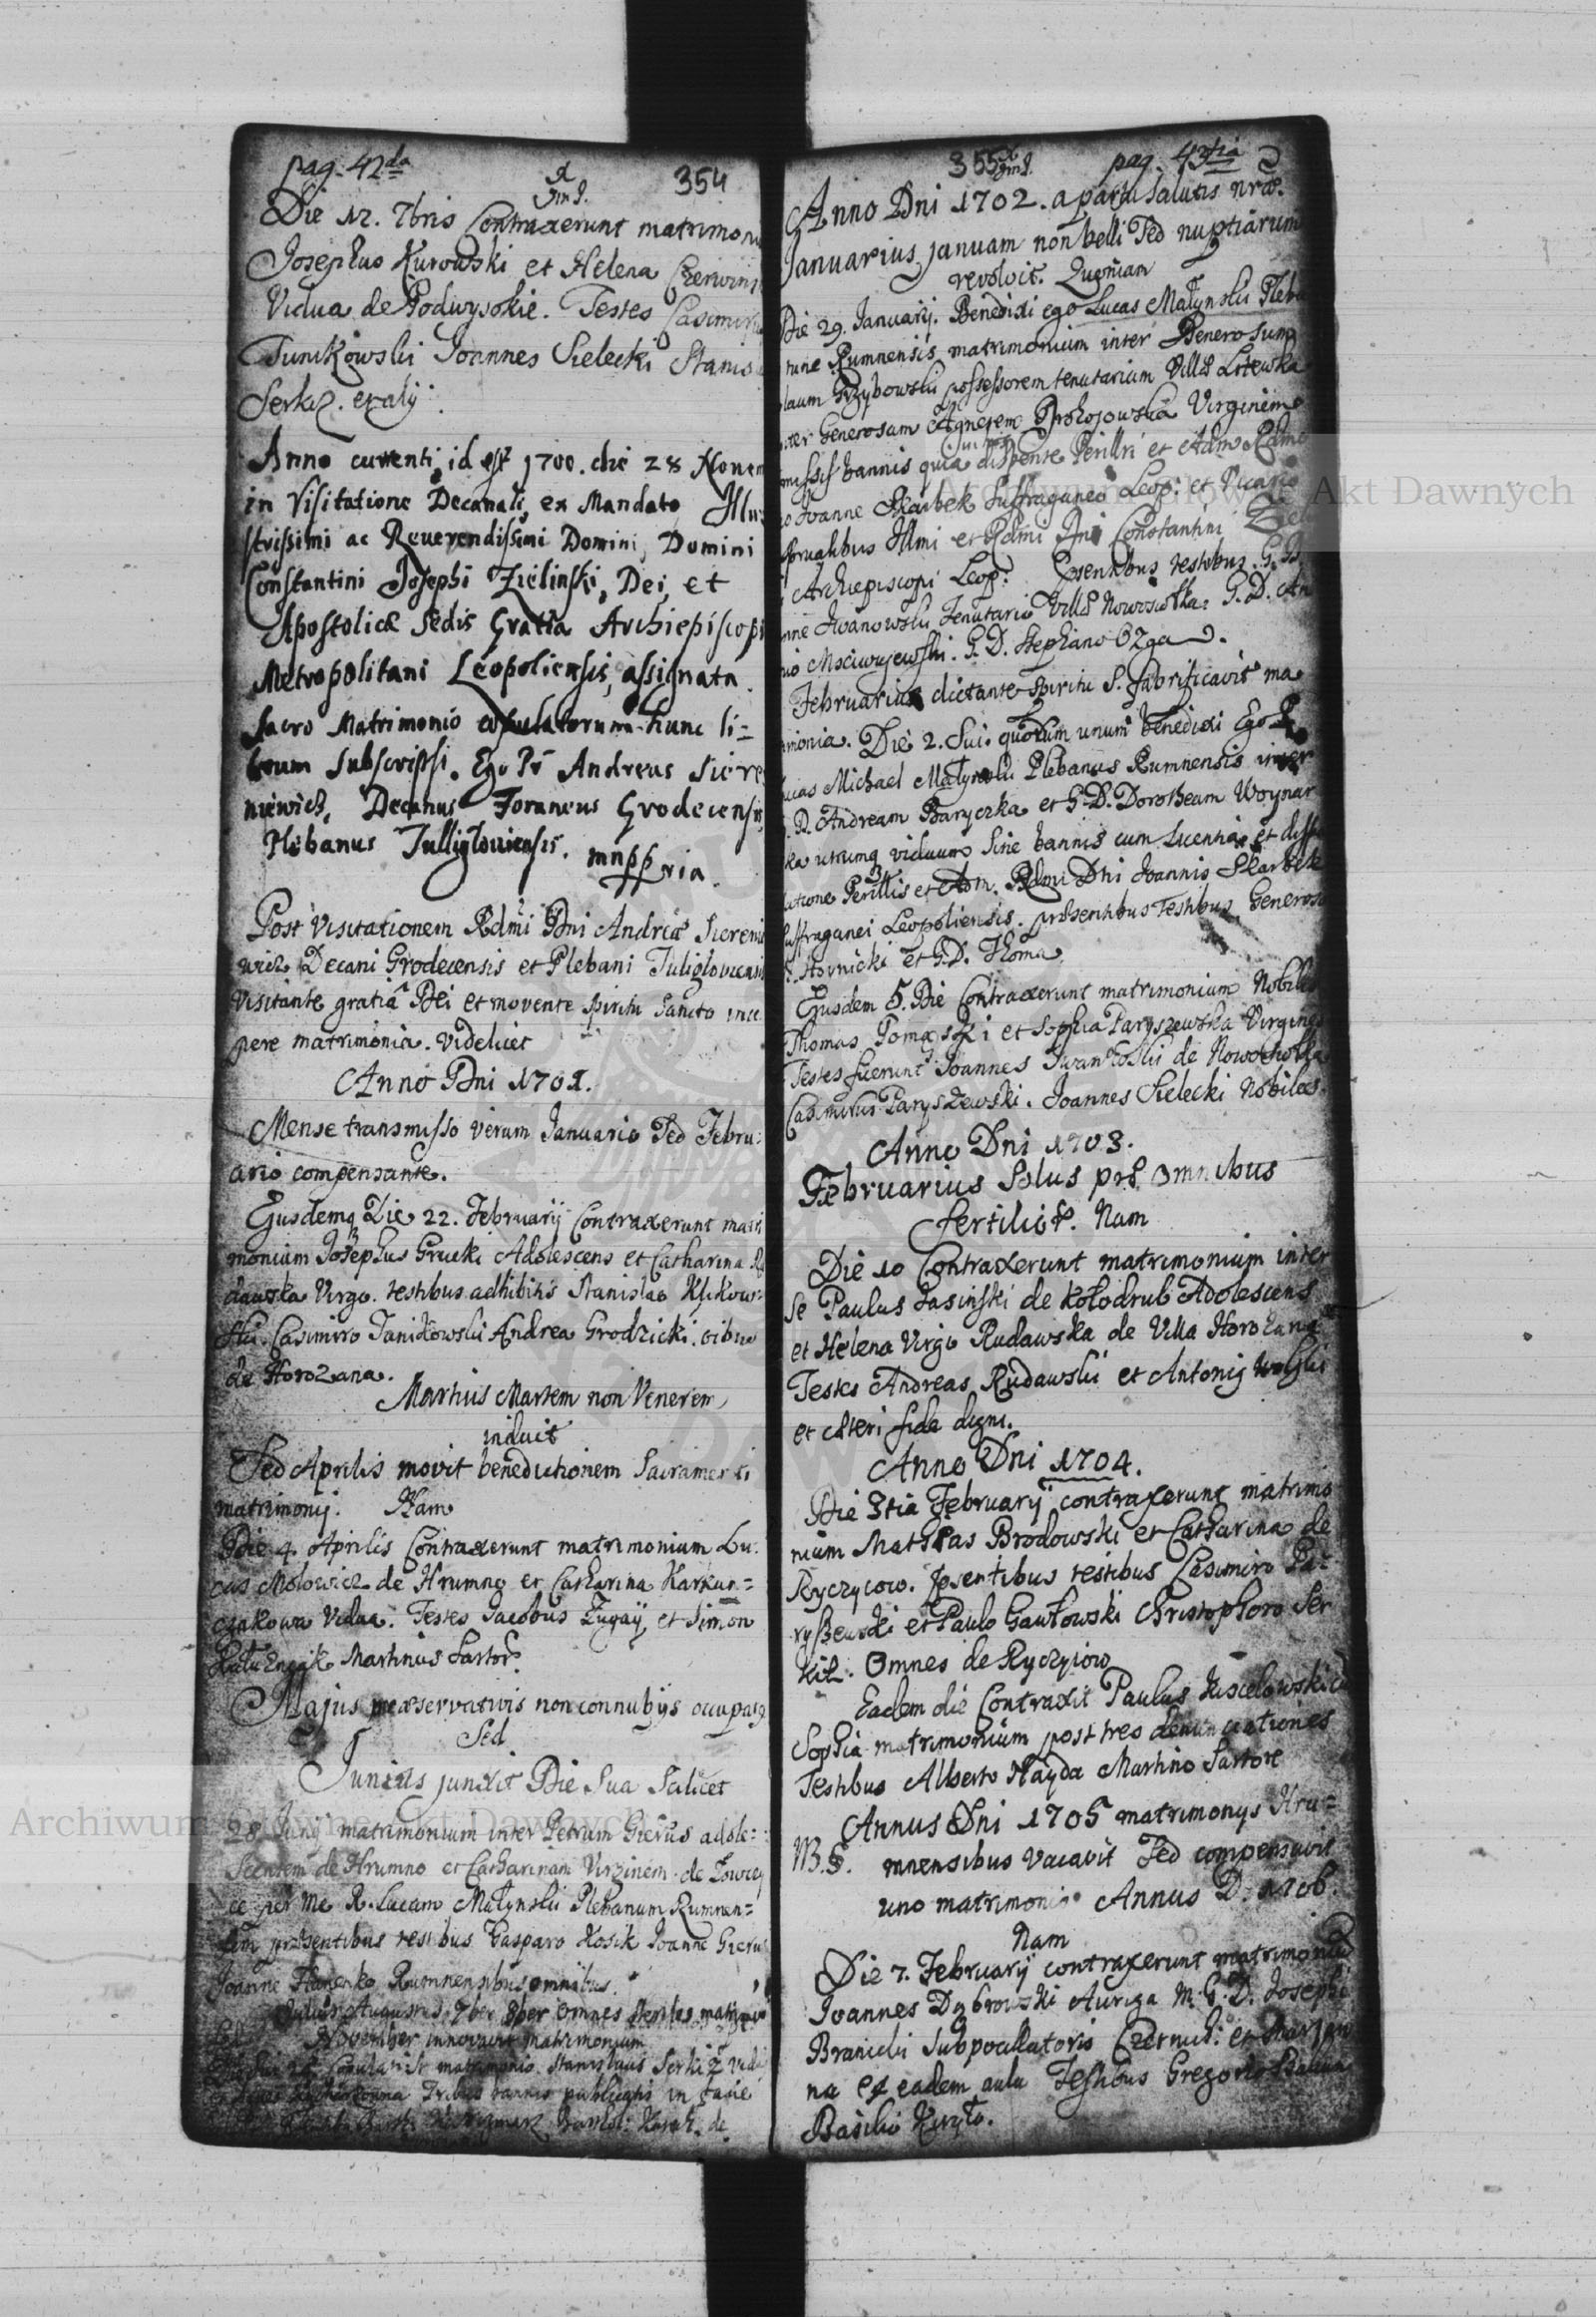 pag. 42da
354
Die 12. 7bris Contraxerunt matrimoni
Josephus Kurowski et Helena Czerwins
Vidua de Podwysokie. Testes Casimirus
Tunikowski Joannes Sielecki Stanis
Serkiz. et alij.
Anno currenti, id est 1700. die 28 Novem
in Visitatione Decanali, ex Mandato Illu
strissimi ac Reverendissimi Domini, Domini
Constantini Josephi Zielinski, Dei, et
Apostolicæ Sedis Gratia Archiepiscopi
Metropolitani Leopoliensis, assignata
sacro Matrimonio copulatorum hunc li=
brum subscripsi. Ego Pr Andreas Siere
niewicz, Decanus Foraneus Grodecensis,
Plebanus Tulliglowiensis. mnppria.
Post Visitationem Rdmi Dni Andreæ Siereni
wicz Decani Grodecensis et Plebani Tuliglowiensis
Visitante gratia Dei et movente spiritu Sancto ince
pere matrimonia. Videlicet
Anno Dni 1701.
Mense transmisso verum Januario Sed Febru:
ario compensante.
Ejusdemq Die 22. Februarij Contraxerunt matri
monium Josephus Grucki Adolescens et Catharina Ru
dawska Virgo. testibus adhibitis Stanislao Klikow=
ski Casimiro Janikowski Andrea Grodzicki. oibus
de Horozana.
Martius Martem non Venerem
induit
Sed Aprilis movit benedictionem Sacramenti
matrimonij. Nam
Die 4. Aprilis Contraxerunt matrimonium Lu:
cas Molowicz de Hrumno et Catharina Karkun=
czakowa Vidua. Testes Jacobus Zugaij et Simon
Martinus Sartor.
Majus non connubijs occupatq
Sed
Junius junxit Die Sua Scilicet
28 Junij matrimonium inter Petrum Gierus adole=
Scentem de Hrumno et Catharinam Virginem de
per me R. Lucam Małynski Plebanum Rumnen=
sem præsentibus testibus Gasparo Kosik Joanne Gierus
Joanne Hanenko Rumnensibus omnibus.
Julius Augustus 7ber 8ber omnes steriles matrimo
November innovavit matrimonium
matrimonio Stanislaus Serkiz vidu
Tribus bannis publicatis in facie
355
pag. 43tia
Anno Dni 1702. a partu Salutis nræ.
Januarius januam non belli Sed nuptiarum
revolvit. Quoniam
Die 29. Januarij. Benedixi ego Lucas Małynski Pleba
nune Rumnensis matrimonium inter Generosum
laum Grzybowski possessorem tenutarium Villæ Litewka
inter Generosam Agnetem Prokojowska Virginem
omissis bannis quia dispente Perillri et Adm Rdmo
Joanne Skarbek Suffraganeo Leop: et Vicario
spirualibus Illmi et Rdmi Dni Constantini Ziel
Archiepiscopi Leop: Psentibus testibus. G. D.
nne Iwanowski Tenutario Villæ Nowosiołka. G. D. An
nio Msciwujewski. G. D. Stephano Ozga.
Februarius dictante Spiritu S. fabrificavit ma
monia. Die 2. Sui. quorum unum benedixi Ego
ucas Michael Małynski Plebanus Rumnensis inter
D. Andream Baryczka et G. D. Dorotheam Woynar
ka utrumq viduum Sine bannis cum licentia et dispe
satione Perillis et Adm. Rdmi Dni Joannis Skarbek
Suffraganei Leopoliensis. præsentibus Testibus, Generoso
Hornicki et G. D. Thoma
Ejusdem 5. Die Contraxerunt matrimonium Nobiles
Thomas Tomaszki et Sophia Paryszewska Virgines
Testes fuerunt Joannes Iwankoski de Nowosiołka
Casimirus Paryszewski. Joannes Sielecki Nobiles.
Anno Dni 1703.
Februarius Solus præ omnibus
fertilior. Nam
Die 10 Contraxerunt matrimonium inter
se Paulus Jasinski de Kołodrub Adolescens
et Helena Virgo Rudawska de Villa Horożana
Testes Andreas Rudawski et Antonij Wolski
et cæteri fide digni.
Anno Dni 1704.
Die 3tia Februarij contraxerunt matrimo
nium Mathias Brodowski et Catharina de
Ryczycow. Psentibus testibus Casimiro Pa=
ryszewski et Paulo Gawłowski Christophoro Ser
kiz. Omnes de Ryczyiow
Eadem die Contraxit Paulus Kiscelowski cu
Sophia matrimonium post tres denunciationes
Testibus Alberto Hayda Martino Sartore
Annus Dni 1705 matrimonys Hru=
mnensibus vacavit Sed compensavit
uno matrimonio Annus D. 1706.
Nam
Die 7. Februarij contraxerunt matrimoniu
Joannes Dąbrowski Auriga M. G. D. Josephi
Branicki Subpocillatoris Czernich: et Marjan
na ex eadem aula Testibus Gregorio
Basilio
Archiwum Główne Akt Dawnych
Archiwum Główne Akt Dawnych